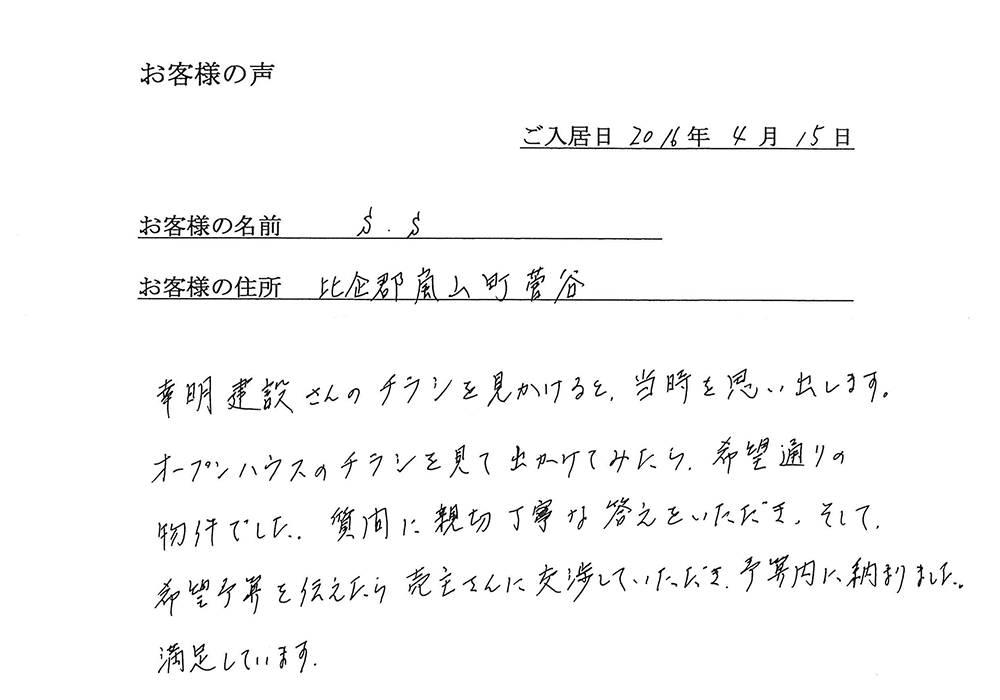 お客様の声
ご入居日 2016年 4月 15日
お客様の名前 S.S
お客様の住所 比企郡嵐山町菅谷
幸明建設さんのチラシを見かけると、当時を思い出します。
オープンハウスのチラシを見て出かけてみたら、希望通りの
物件でした。質問に親切丁寧な答えをいただき、そして、
希望予算を伝えたら売主さんに交渉していただき、予算内に納まりました。
満足しています。